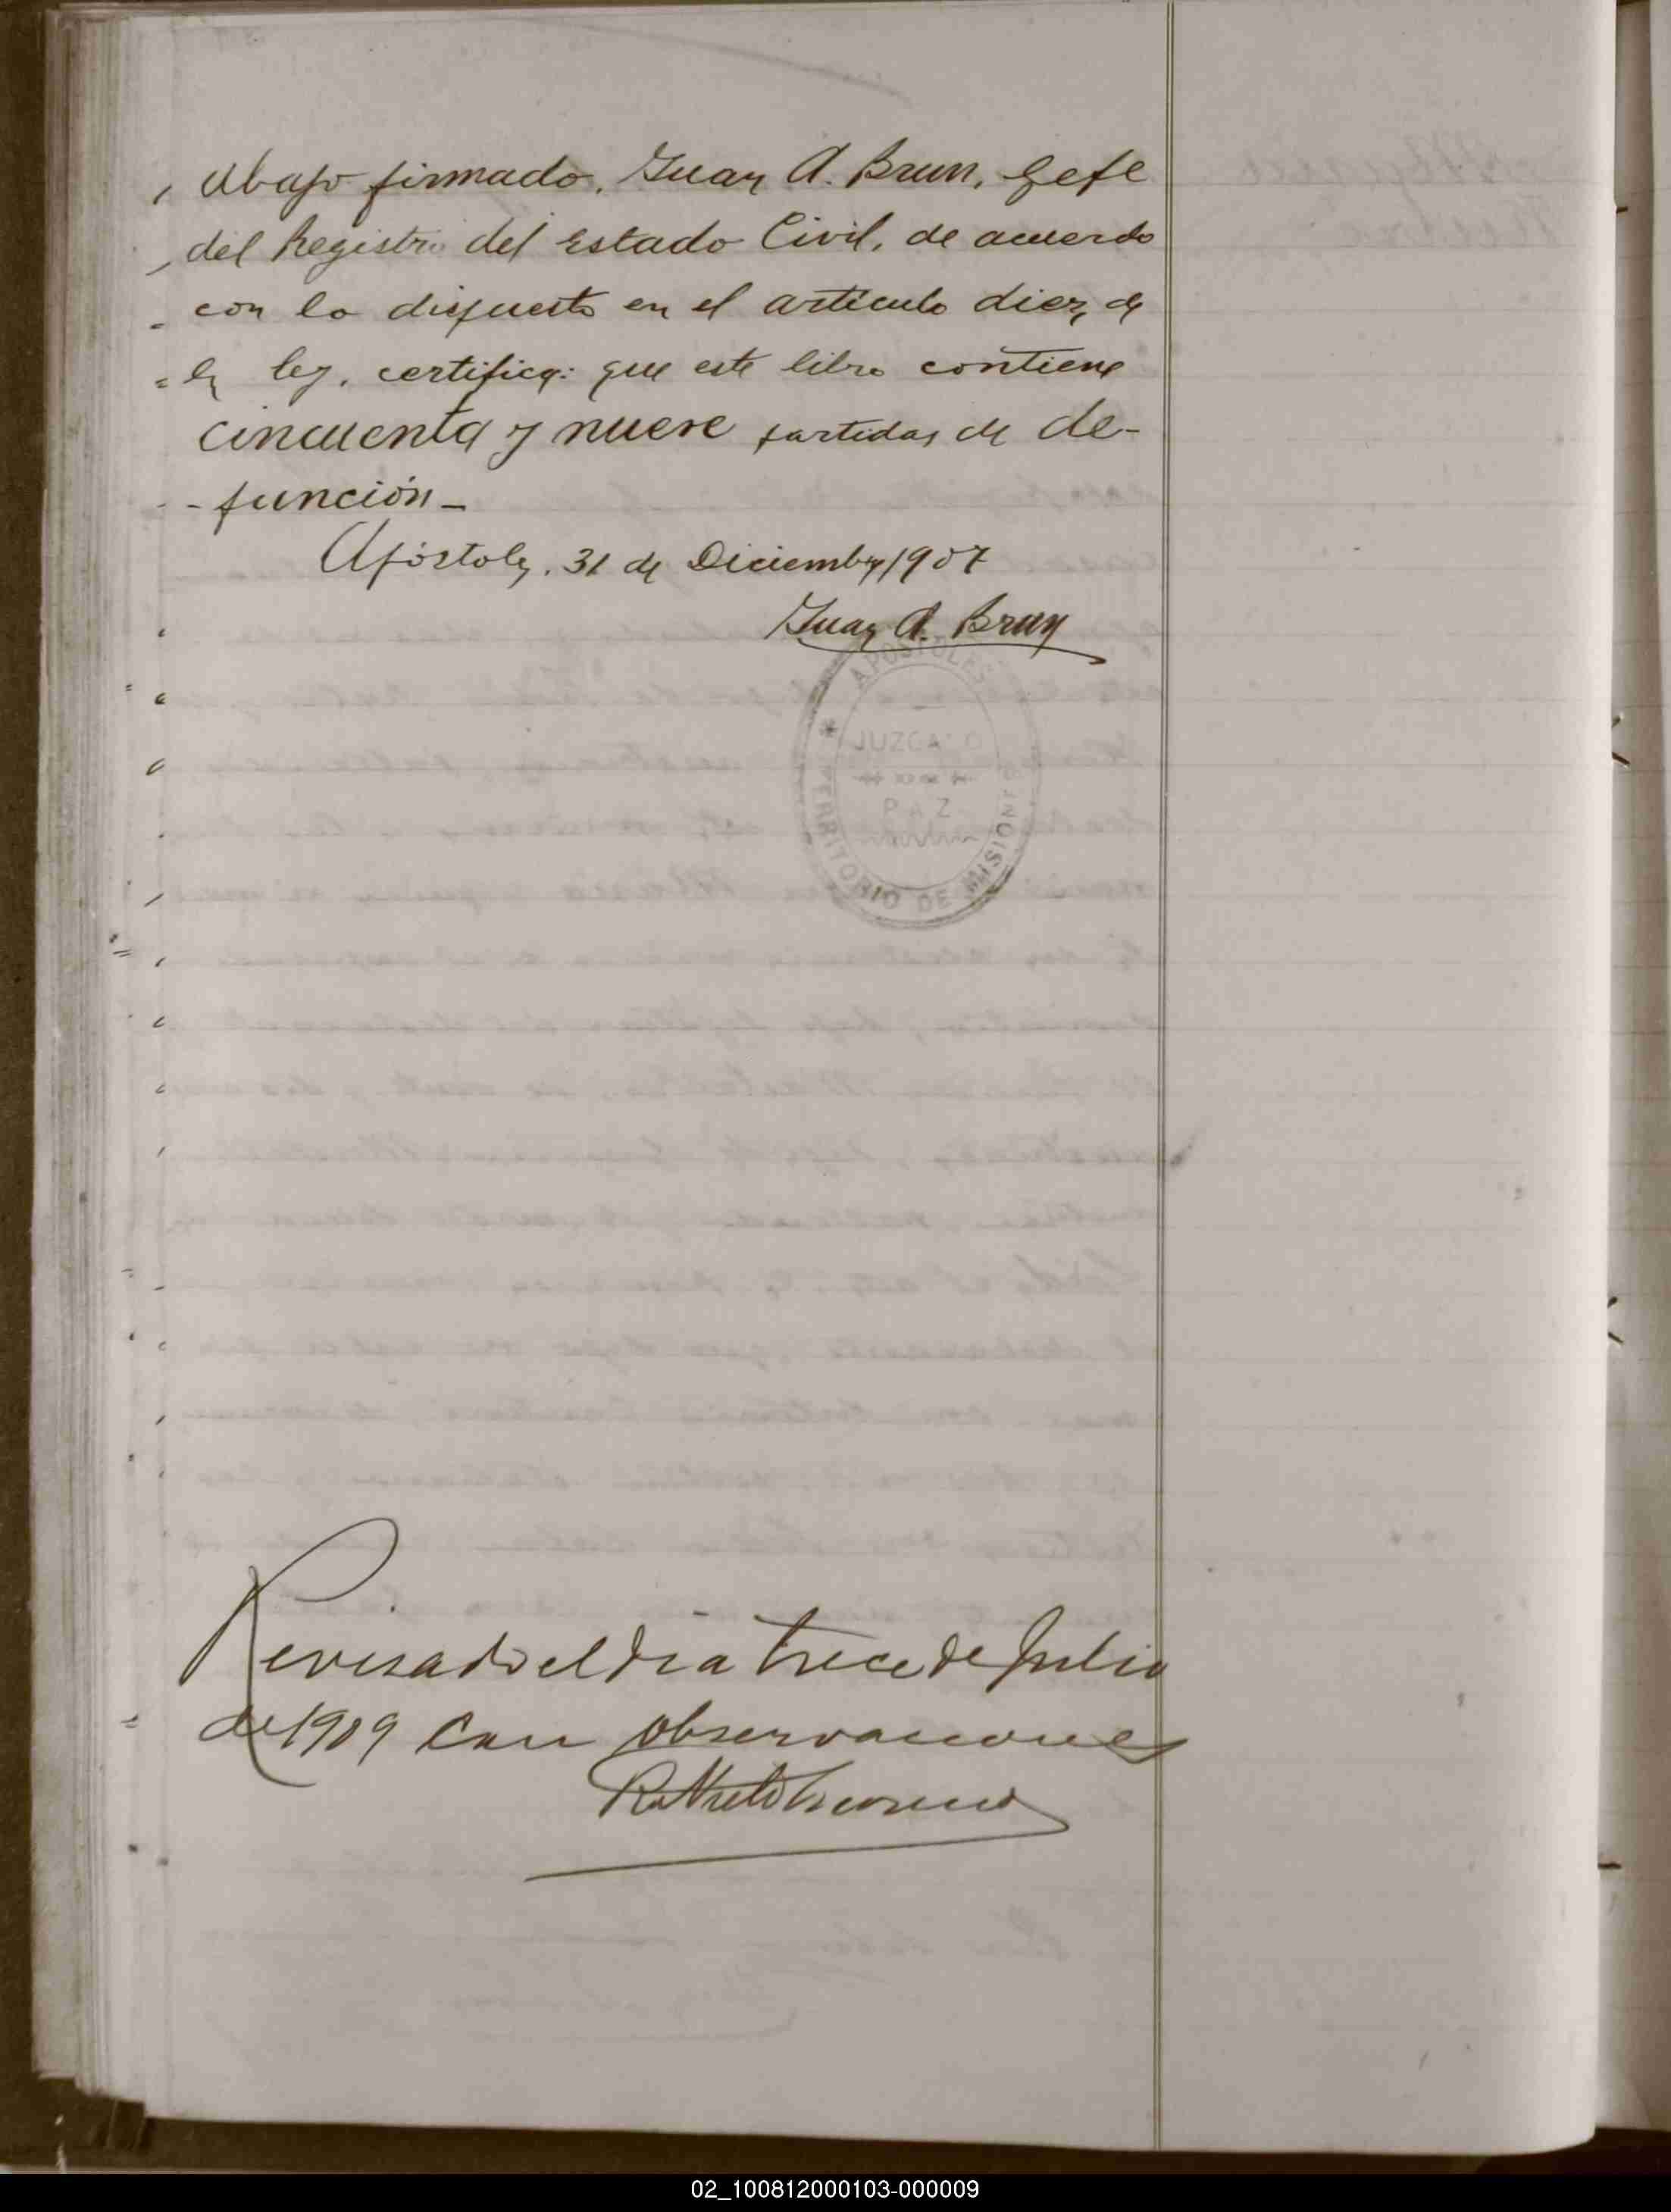 Abajo firmado, Juan A. Brun, Gefe
del Registro del Estado Civil, de acuerdo
con lo dispuesto en el artículo diez de
la ley, certifica: que este libro contiene
cincuenta y nueve partidas de de-
función_
Apóstoles, 31 de Diciembre 1907
Juan A. Brun
APOSTOLES
JUZGADO
PAZ
TERRITORIO DE MISIONES
Revisado el dia trece de Julio
de 1909 con observaciones
02_100812000103-000009